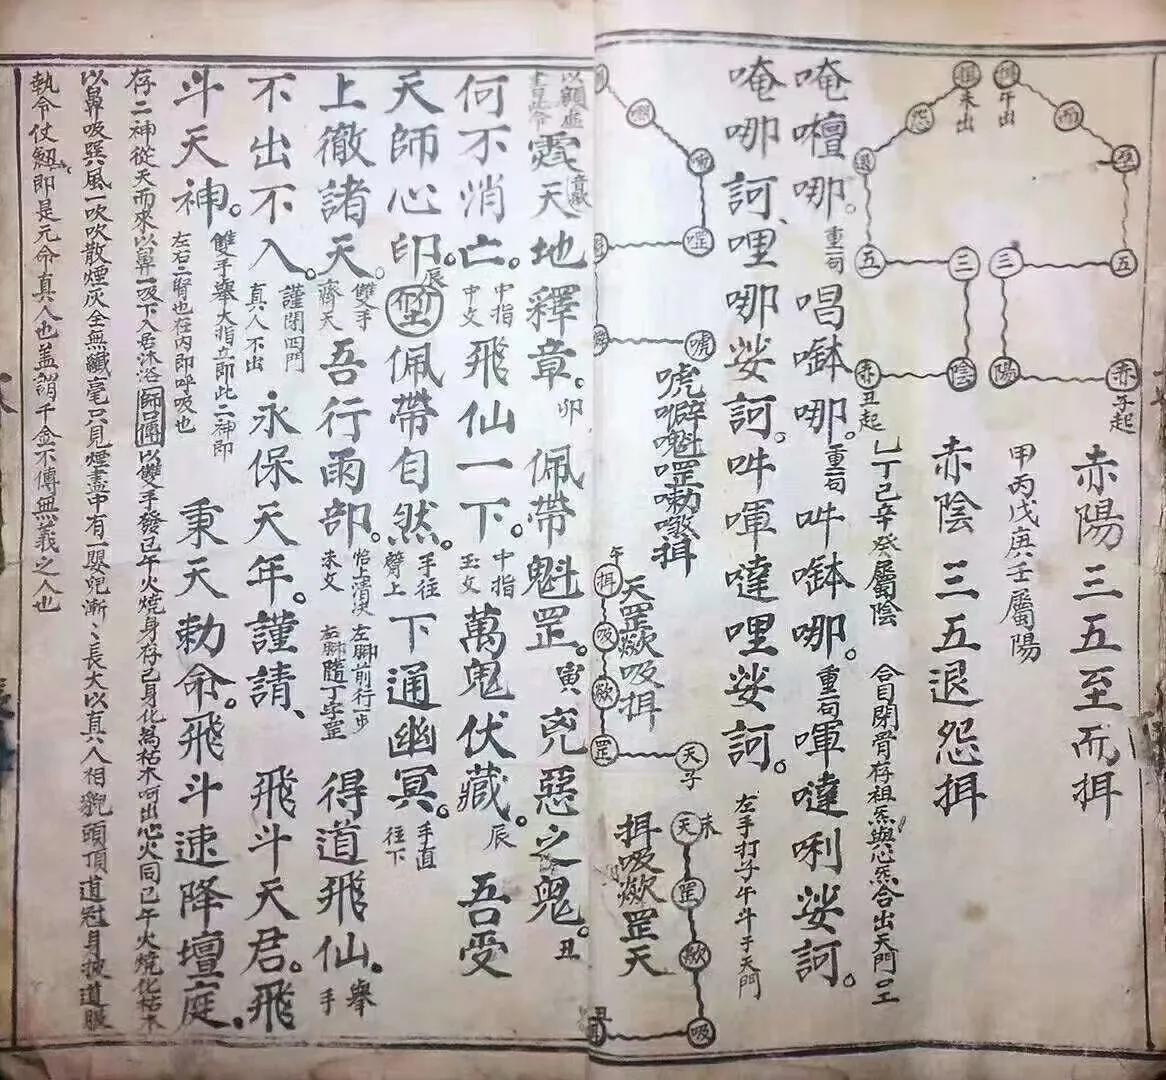 赤陽三五至而揖
甲丙戊庚壬屬陽
赤陰三五退怨揖
乙丁己辛癸屬陰
合目閉骨存祖炁與心炁合出天門
而
至
五
三
陽
赤
子起
午出
未出
怨
退
五
三
陰
赤
丑起
唵𠹀哪。重一句 唱𠲿哪。重一句 吽𠲿哪。重一句 㖮噠唎娑訶。
唵哪訶、哩哪娑訶。吽㖮噠哩娑訶。左手打子午斗于天門
天罡歘吸揖
揖吸歘罡天
午
揖
吸
歘
罡
天
子
未
天
罡
歘
吸
丑
以願虛書此令
霐天音歘地釋章。卯 佩帶魁罡。寅 兇惡之鬼。丑
何不消亡。中指中文 飛仙一下。中指玉文 萬鬼伏藏。辰 吾受
天師心印。辰 佩帶自然。手往臂上 下通幽冥。手直往下
上徹諸天。雙手齊天 吾行雨部。左脚前行步右脚隨丁字罡 得道飛仙。舉手
不出不入。謹閉四門真人不出 永保天年。謹請、飛斗天君。飛
斗天神。雙手舉大指立即此二神即左右二腎也在内即呼吸也 秉天勅命。飛斗速降壇庭。
存二神從天而來以鼻一吸下入君沐浴師口傳以雙手發巳午火燒身存己身化為枯木呵出心火同巳午火燒化枯木
以鼻吸巽風一吹吹散煙灰全無纖毫只見煙盡中有一嬰兒漸、長大以真人相貌頭頂道冠身披道服
執令仗劍即是元命真人也盖謂千金不傳無義之人也